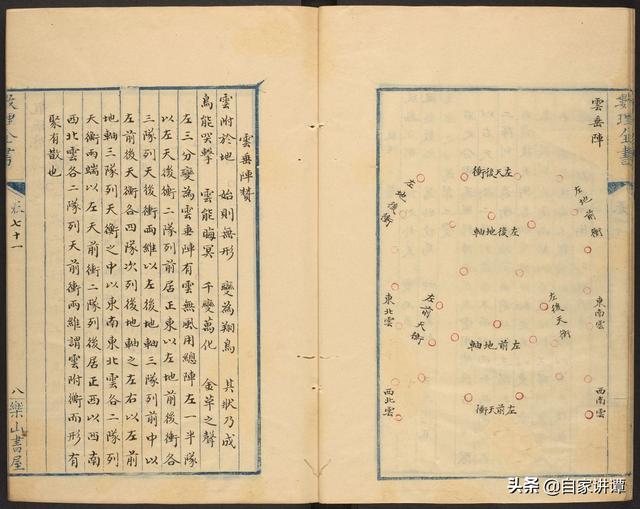 數理全書
雲垂陣
左天後衝
左地前衝
左地後衝
左後地軸
東南雲
左後天衡
左前天衡
東北雲
左前地軸
西南雲
西北雲
左前天衝
雲垂陣贊
雲附於地 始則無形 變為翔鳥 其狀乃成
鳥能突擊 雲能晦冥 千變萬化 金革之聲
左三分變為雲垂陣有雲無風用總陣左一半隊
以左天後衝二隊列前居正東以左地前後衝各
三隊列天後衝兩維以左後地軸三隊列以
左前後天衡各四隊次列後地軸之左右以左前
地軸三隊列天衡之中以東南東北雲各二隊列
天衡兩端以左天前衝二隊列後居正西以西南
西北雲各二隊列天前衝兩維謂雲附衝而形有
聚有散也
數理全書
卷七十一
八 樂山書屋
头条 @自家讲谭